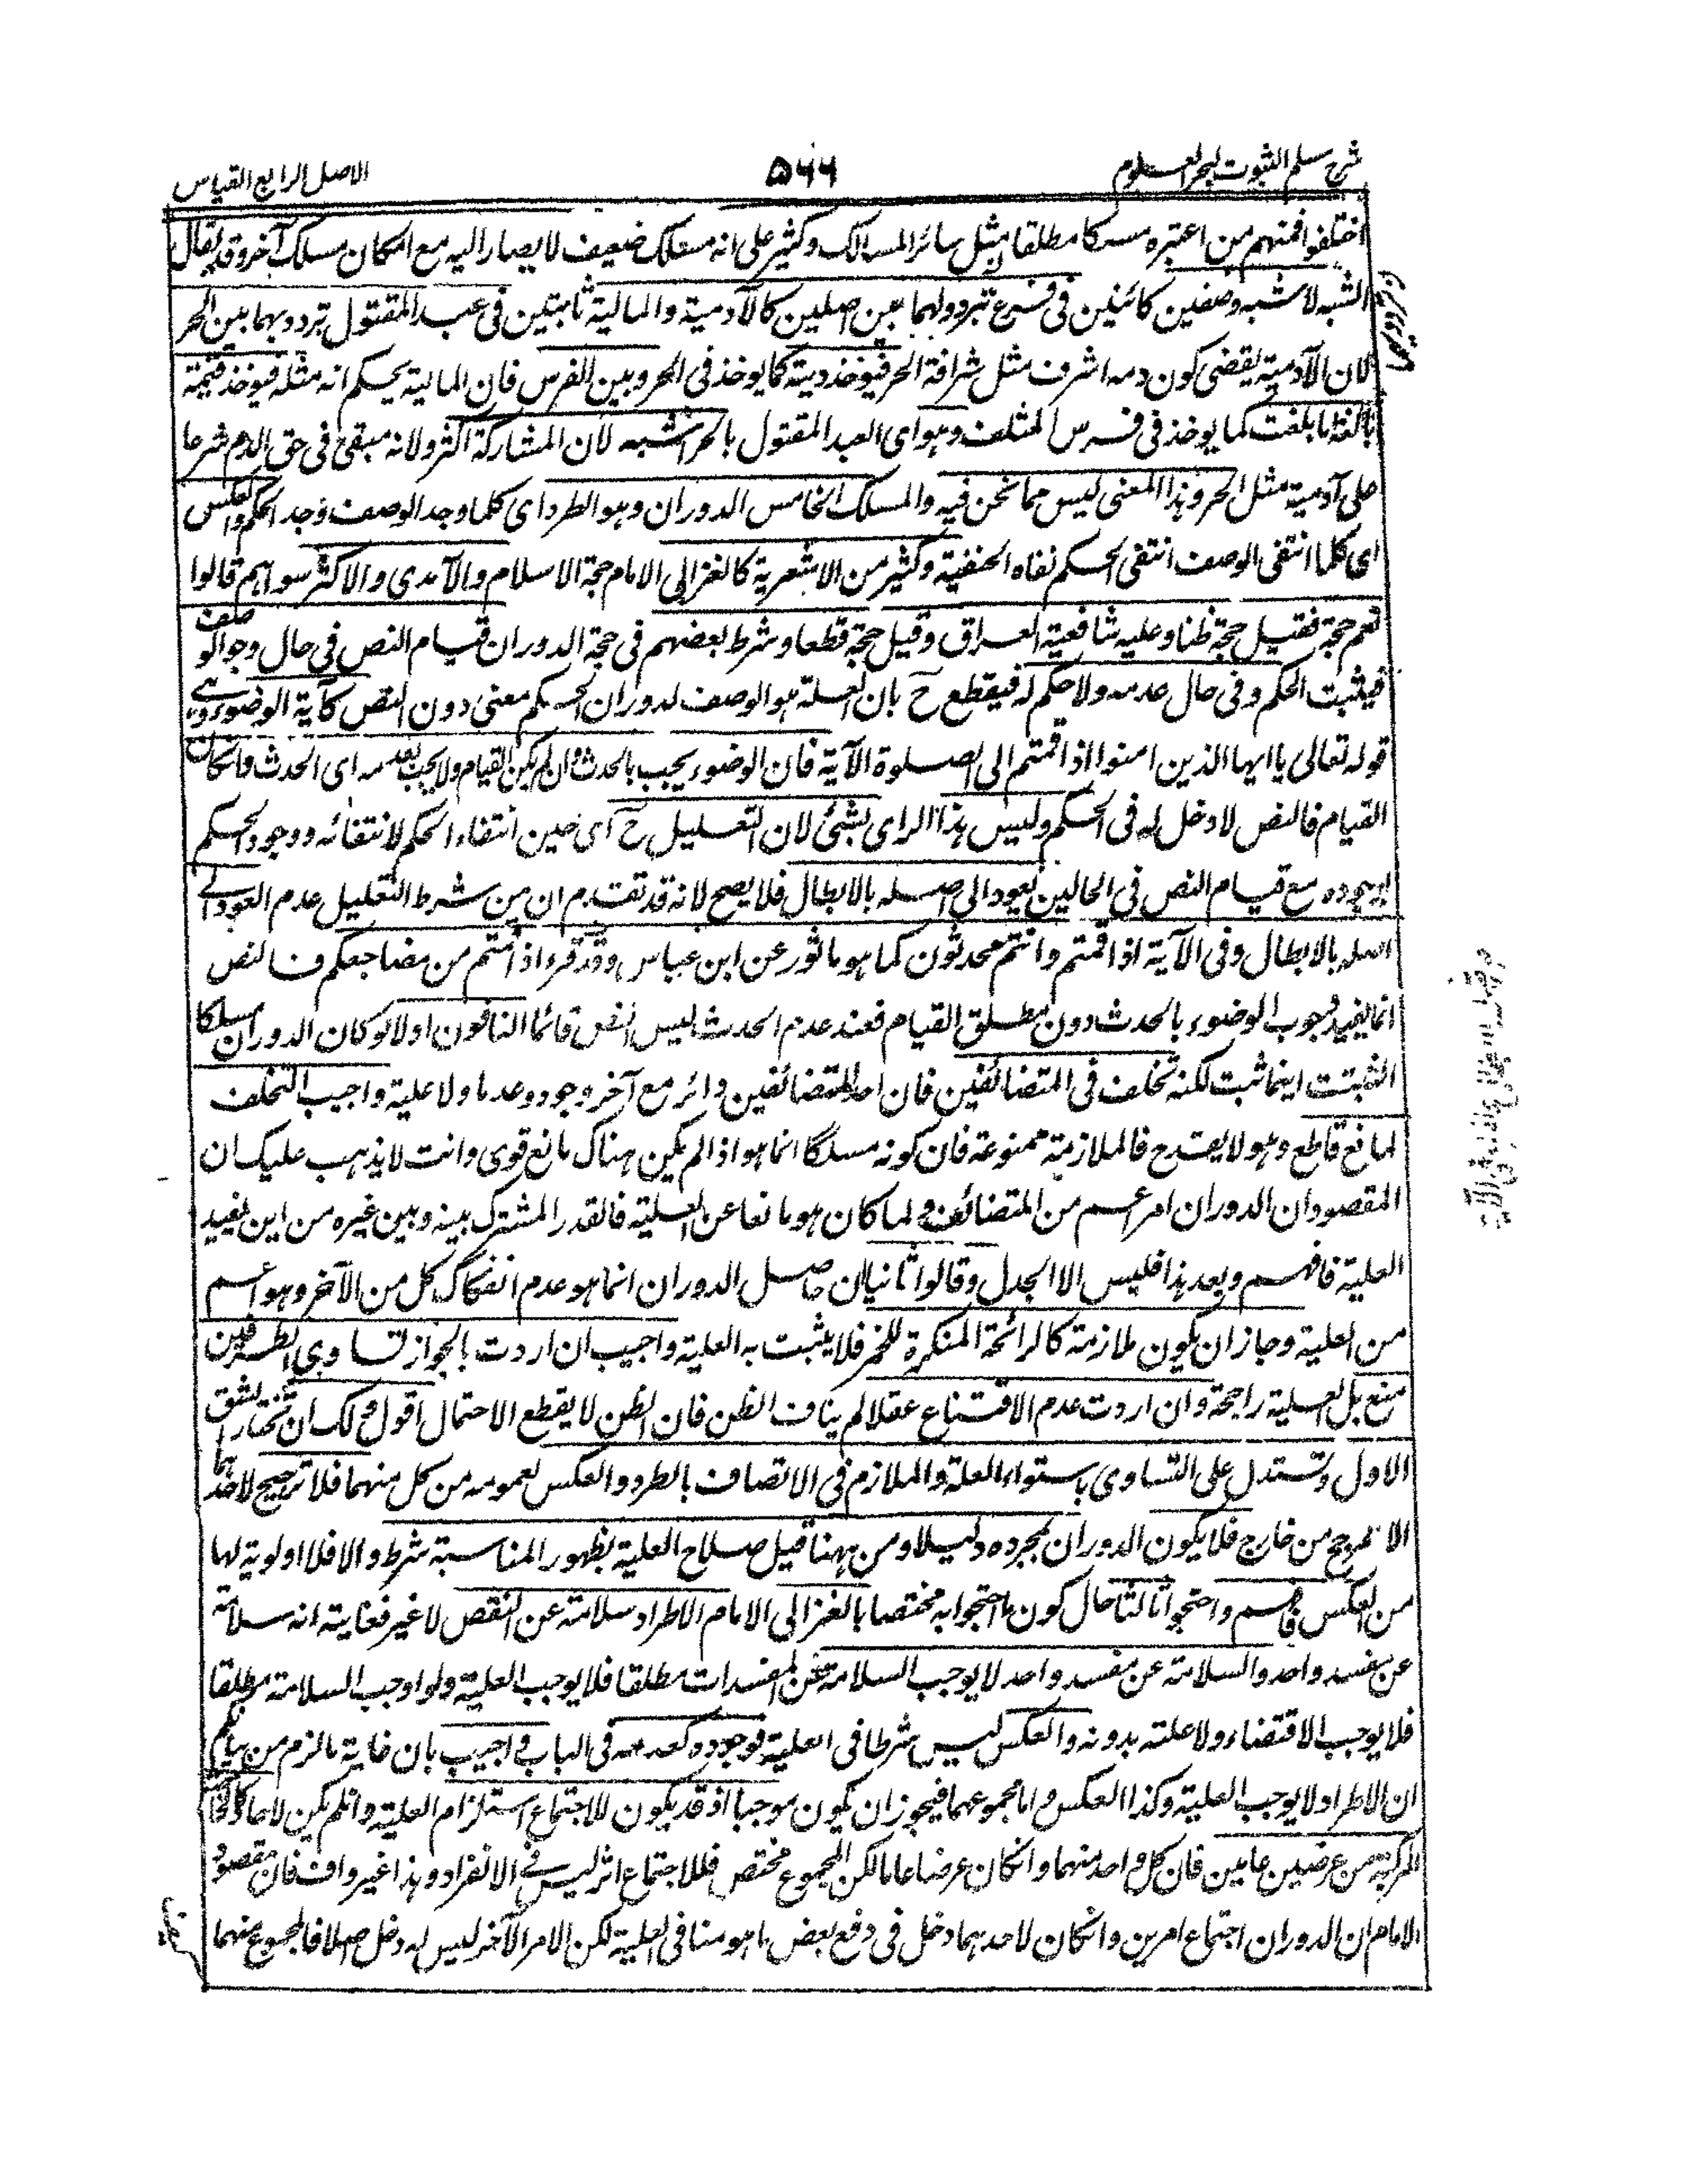 شرح مسلم الثبوت لبحر العلوم
۵۶۶
الاصل الرابع القیاس
اختلفوا فمنهم من اعتبره مسلکا مطلقا مثل سائر المسالک وکثیر علی انه مسلک ضعیف لا یصار الیه مع امکان مسلک آخر وقد یقال
الشبه لاشبه وصفین کائنین فی فرع تردد بهما بین اصلین کالآدمیة والمالیة ثابتین فی عبد المقتول تردد بهما بین الحر
لان الآدمیة یقضی کون دمه اشرف مثل شرافة الحر فیوخذ دیته کما یوخذ فی الحر وبین الفرس فان المالیة یحکم انه مثله فیوخذ قیمته
بالغة ما بلغت کما یوخذ فی فرس المتلف وهو ای العبد المقتول بالحر اشبه لان المشارکة اکثر ولانه مبقی فی حق الدم شرعا
علی آدمیة مثل الحر وهذا المعنی لیس مما نحن فیه والمسلک الخامس الدوران وهو الطرد ای کلما وجد الوصف وجد الحکم والعکس
ای کلما انتفی الوصف انتفی الحکم نفاه الحنفیة وکثیر من الاشعریة کالغزالی الامام حجة الاسلام والآمدی والاکثر سواهم قالوا
نعم حجة فقیل حجة ظنا وعلیه شافعیة العراق وقیل حجة قطعا وشرط بعضهم فی حجة الدوران قیام النص فی حال وجود الوصف
فیثبت الحکم وفی حال عدمه ولا حکم له فیقطع ح بان العلة هو الوصف لدوران الحکم معنی دون النص کآیة الوضوء وهی
قوله تعالی یا ایها الذین امنوا اذا قمتم الی الصلوة الآیة فان الوضوء یجب بالحدث وان لم یکن القیام ولا یجب بعدمه ای الحدث وانکان
القیام فالنص لا دخل له فی الحکم ولیس هذا الرای بشئ لان التعلیل ح ای حین انتفاء الحکم لانتفائه ووجود الحکم
لوجوده مع قیام النص فی الحالین یعود الی اصله بالابطال فلا یصح لانه قد تقدم ان من شرط التعلیل عدم العود الی
اصله بالابطال وفی الآیة اذا قمتم وانتم محدثون کما هو ماثور عن ابن عباس وقد قرء اذا قمتم من مضاجعکم فالنص
انما یفید وجوب الوضوء بالحدث دون مطلق القیام فعند عدم الحدث لیس النص قائما النافون اولا لو کان الدوران مسلکا
لثبتت اینما ثبت لکنه تخلف فی المتضائفین فان احد المتضائفین دائر مع آخر وجودا وعدما ولا علیة واجیب التخلف
لمانع قاطع وهو لا یقدح فالملازمة ممنوعة فان کونه مسلکا انما هو اذا لم یکن هناک مانع قوی وانت لا یذهب علیک ان
المقصود ان الدوران امر اعم من المتضائف ولما کان هو مانعا عن العلیة فالقدر المشترک بینه وبین غیره من این یفید
العلیة فافهم وبعد هذا فلیس الا الجدل وقالوا ثانیا ان حاصل الدوران انما هو عدم انفکاک کل من الآخر وهو اعم
من العلیة وجاز ان یکون ملازمة کالرائحة المنکرة للخمر فلا یثبت به العلیة واجیب ان اردت بالجواز تساوی الطرفین
منع بل العلیة راجحة وان اردت عدم الامتناع عقلا لم یناف الظن فان الظن لا یقطع الاحتمال اقول لک ان تختار الشق
الاول وتستدل علی التساوی باستواء العلة والملازم فی الاتصاف بالطرد والعکس لعمومه من کل منهما فلا ترجیح لاحدهما
الا بمرجح من خارج فلا یکون الدوران بمجرده دلیلا ومن ههنا قیل صلاح العلیة بظهور المناسبة شرط والا فلا اولویة لها
من العکس فافهم واحتجوا ثالثا حال کون ما احتجوا به مختصا بالغزالی الامام الاطراد سلامته عن النقص لا غیر فغایته انه سلامة
عن مفسد واحد والسلامة عن مفسد واحد لا یوجب السلامة عن المفسدات مطلقا فلا یوجب العلیة ولو اوجب السلامة مطلقا
فلا یوجب الاقتضاء ولا علة بدونه والعکس لیس شرطا فی العلیة فوجوده کعدمه فی الباب واجیب بان غایة ما لزم من بیانکم
ان الاطراد لا یوجب العلیة وکذا العکس واما مجموعهما فیجوز ان یکون موجبا اذ قد یکون للاجتماع استلزام العلیة وان لم یکن لآحاد کالخاصة
المرکبة من عرضین عامین فان کل واحد منهما وانکان عرضا عاما لکن المجموع مختص فللاجتماع اثر لیس فی الانفراد وهذا غیر واف فان مقصود
الامام ان الدوران اجتماع امرین وانکان لاحدهما دخل فی دفع بعض ما هو مناف العلیة لکن الامر الآخر لیس له دخل اصلا فالمجموع منهما